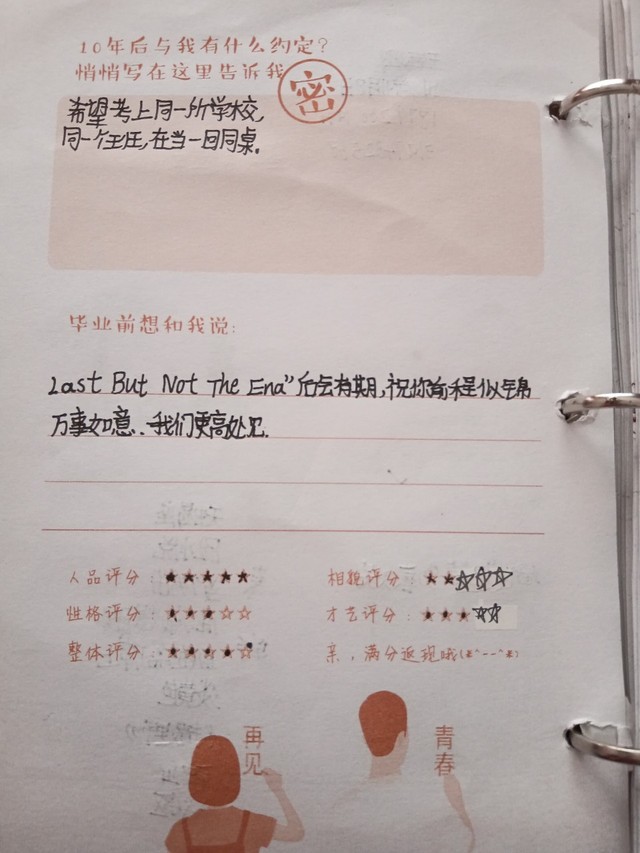 10年后与我有什么约定?
悄悄写在这里告诉我
密
希望考上同一所学校,
同一个班,在当一回同桌。
毕业前想和我说:
Last But Not The End" 后会有期,祝你前程似锦
万事如意..我们更高处见.
人品评分:★★★★★
相貌评分:★★☆☆☆
性格评分:★★★☆☆
才艺评分:★★★☆☆
整体评分:★★★★☆
亲,满分返现哦(*^--^*)
再见
青春